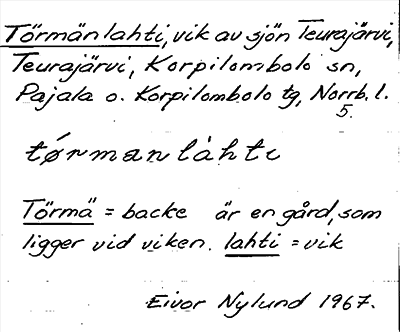 Törmänlahti, vik av sjön Teurajärvi,
Teurajärvi, Korpilombolo sn,
Pajala o. Korpilombolo tg, Norrb. l.
5.
tørmanlàhti
Törmä = backe är en gård, som
ligger vid viken. lahti = vik
Eivor Nylund 1967.